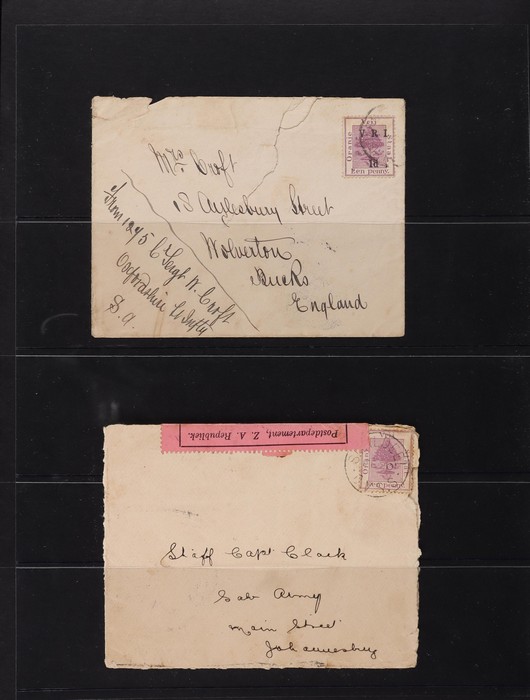 V.R.I.
1d
Oranje
Vrij
Staat.
Een penny.
Mrs Croft
18 Aylesbury Street
Wolverton
Bucks
England
From 1275 C/Sergt W. Croft
Oxfordshire Lt Infty
S.A.
Postdepartement, Z. A. Republiek.
Staff Capt Clark
Salv Army
Main Street
Johannesburg